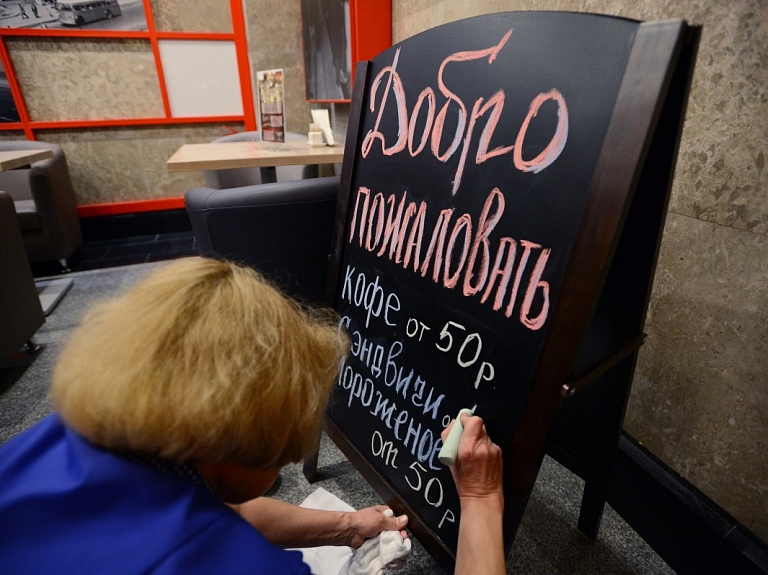 Добро
пожаловать
кофе от 50р
Сэндвичи о
мороженое
от 50р